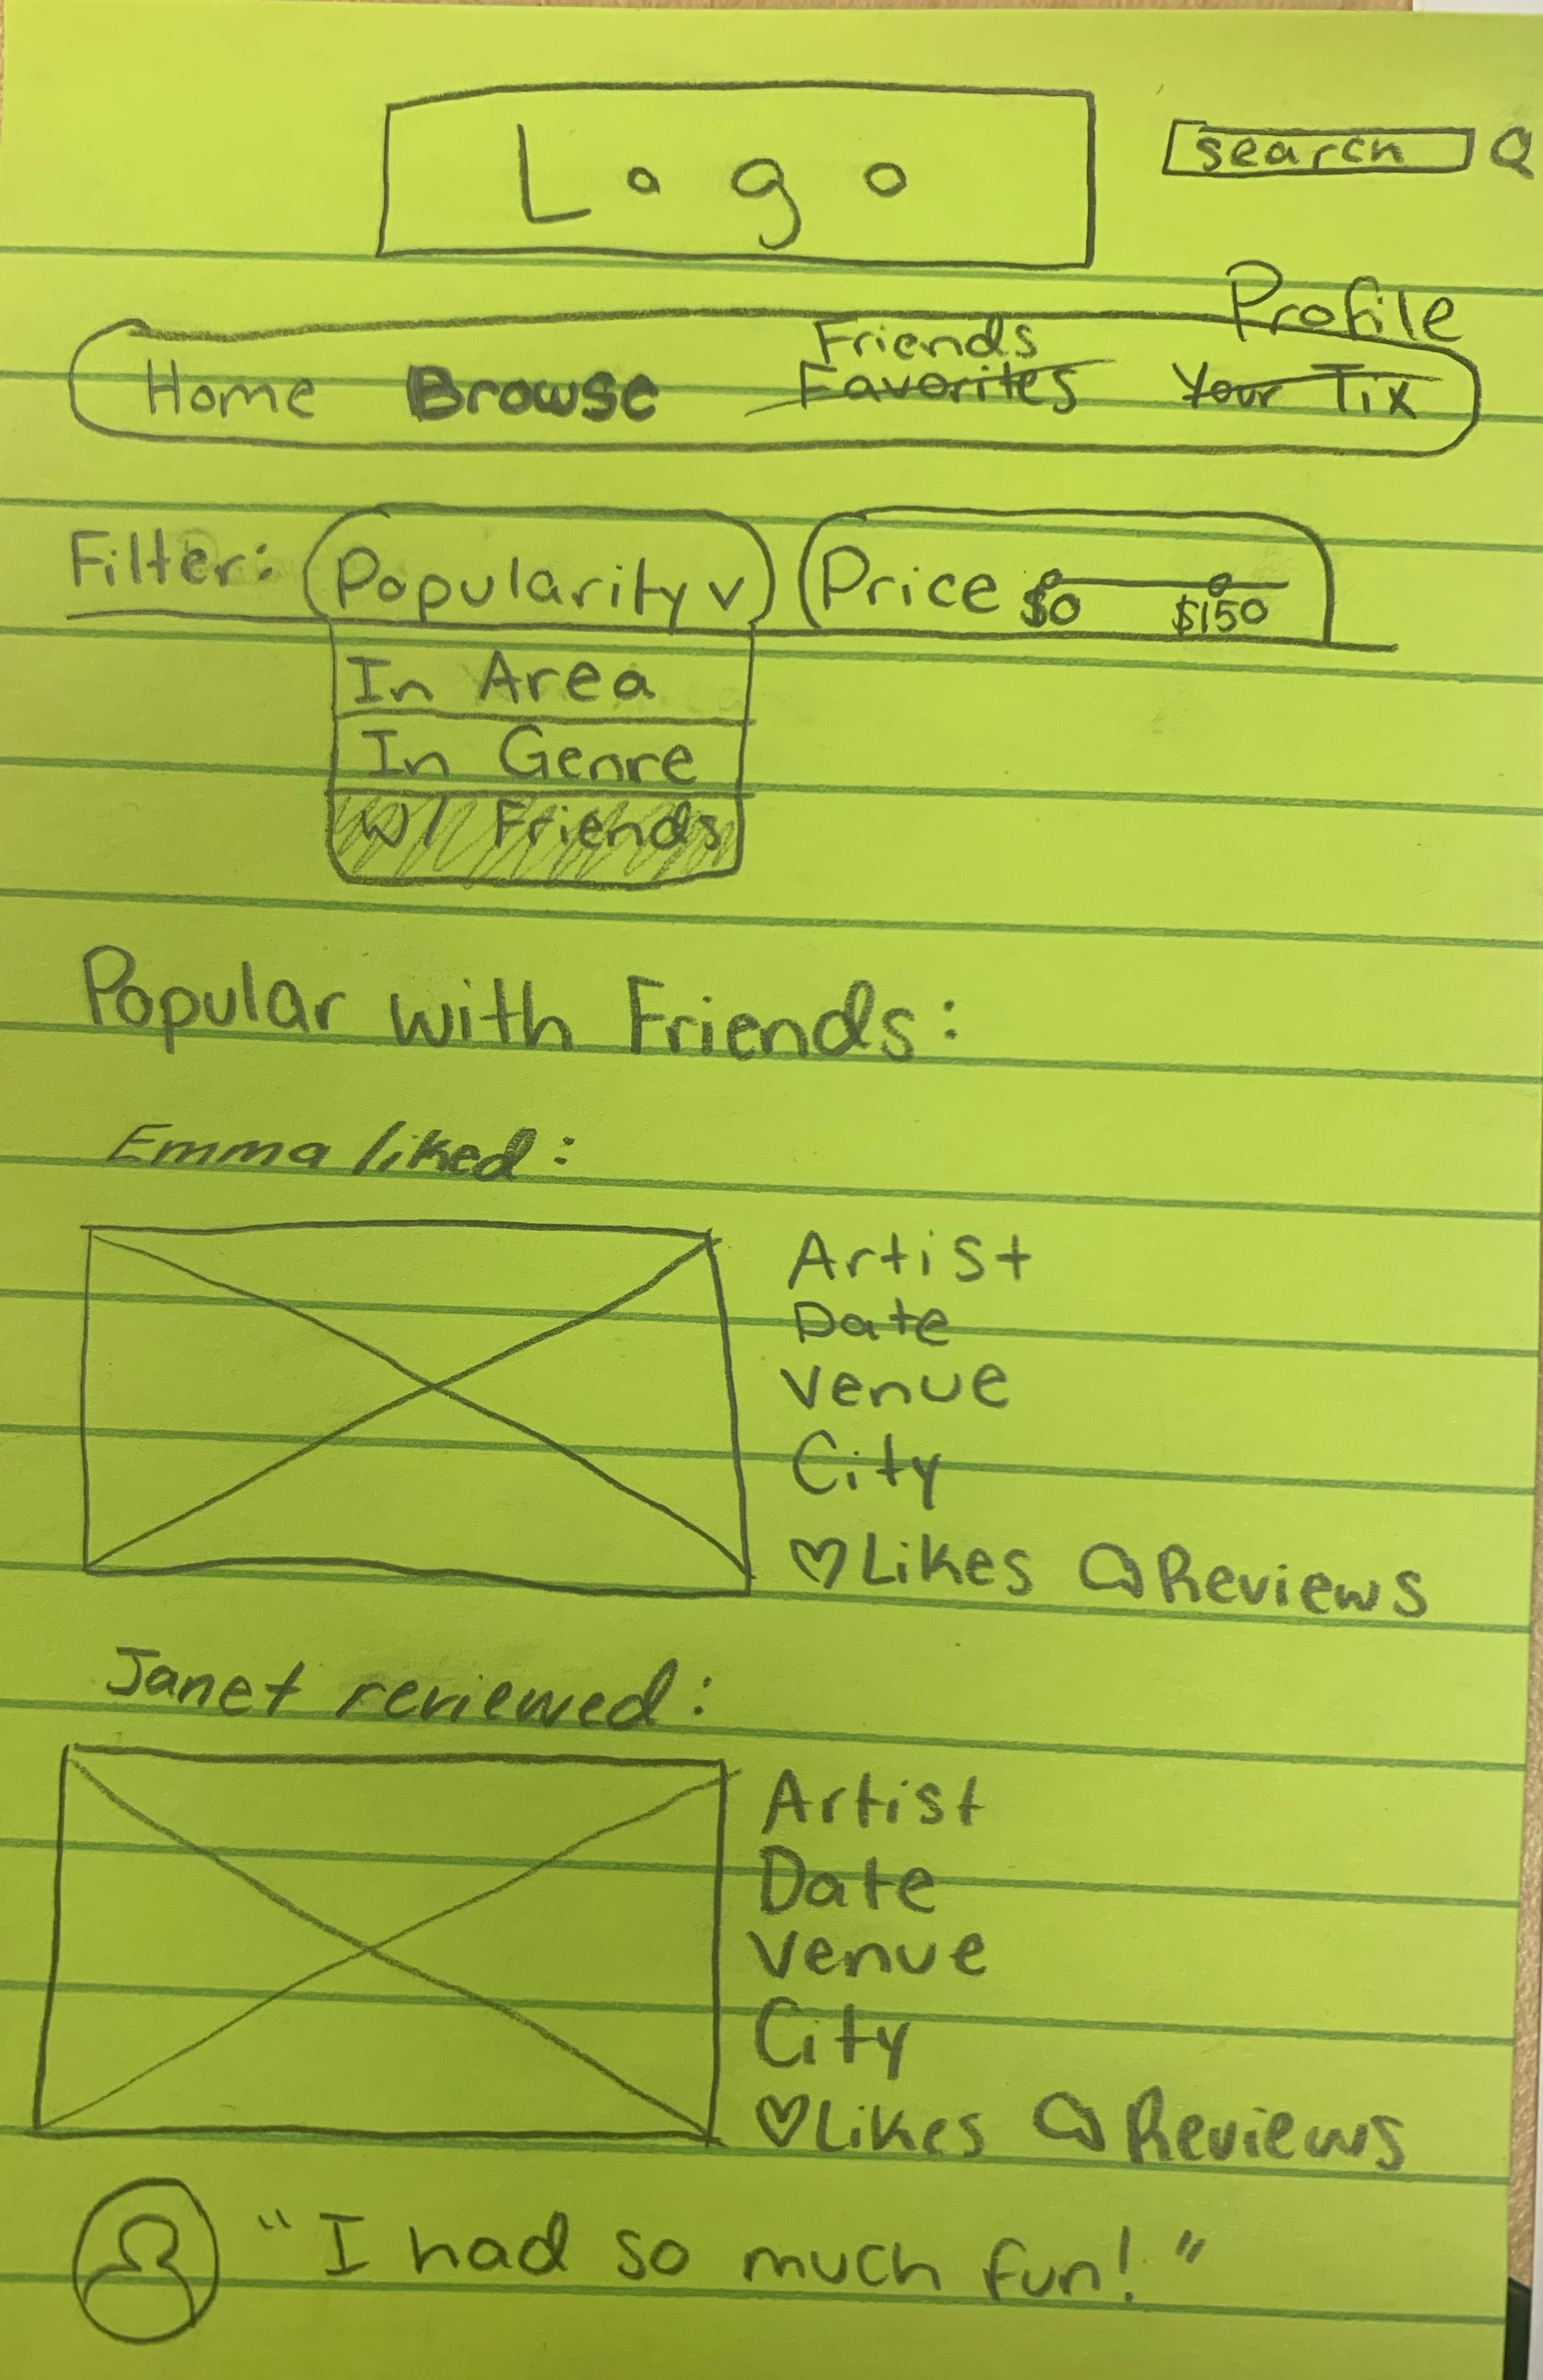 Logo
search
Profile
Friends
Home Browse Favorites Your Tix
Filter: Popularity v Price $0 $150
In Area
In Genre
w/ Friends
Popular with Friends:
Emma liked:
Artist
Date
Venue
City
♡ Likes Reviews
Janet reviewed:
Artist
Date
Venue
City
♡ Likes Reviews
"I had so much fun!"